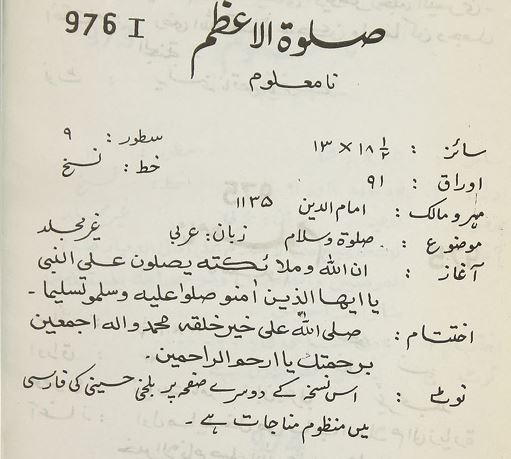 976 I
صلوة الاعظم
نامعلوم
سائز : ۱۸ ۱/۲ × ۱۳ سطور : ۹
اوراق : ۹۱ خط : نسخ
مہر و مالک : امام الدین ۱۱۳۵
موضوع : صلوة وسلام زبان : عربی غیر مجلد
آغاز : ان الله وملائكته يصلون على النبى
يا ايها الذين آمنو صلوا عليه وسلمو تسليما -
اختتام : صلى الله على خير خلقه محمد واله اجمعين
برحمتك يا ارحم الراحمين -
نوٹ : اس نسخہ کے دوسرے صفحہ پر بلخی حسینی کی فارسی
میں منظوم مناجات ہے -